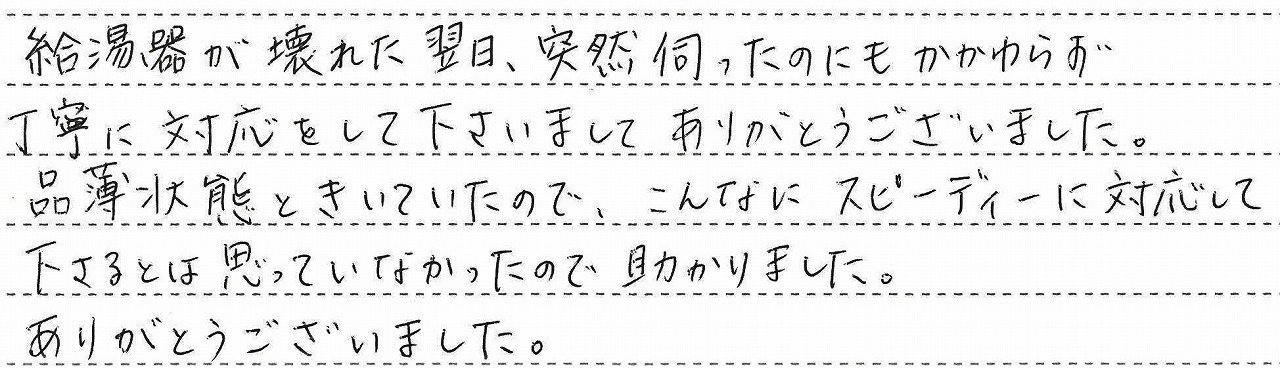 給湯器が壊れた翌日、突然伺ったのにもかかわらず
丁寧に対応をして下さいましてありがとうございました。
品薄状態ときいていたので、こんなにスピーディーに対応して
下さるとは思っていなかったので助かりました。
ありがとうございました。